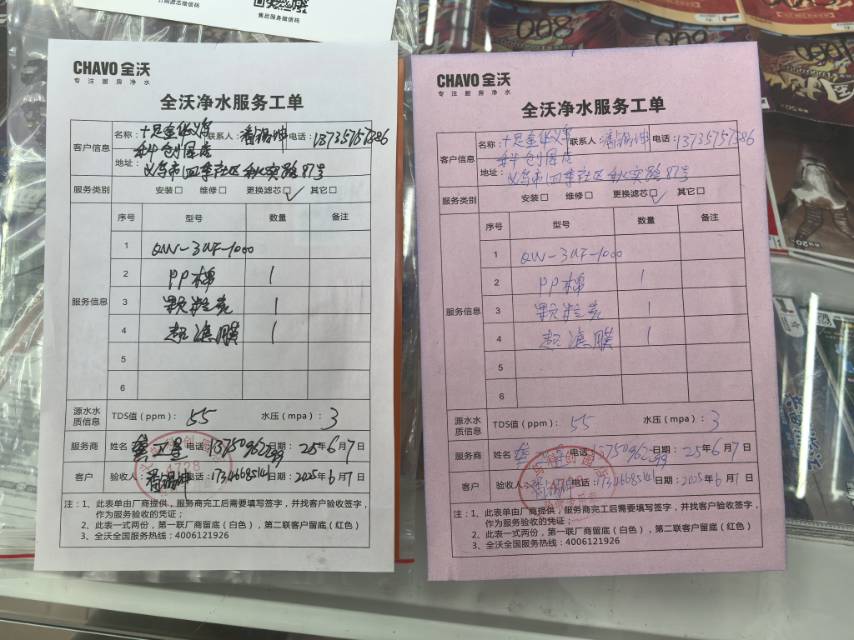 售后服务微信栈
CHAVO 全沃
专注厨房净水
全沃净水服务工单
客户信息
名称：十足金华义乌科创园店 联系人：潘锡坤 电话：13735757386
地址：义乌市四季社区秋实路87号
服务类别 安装□ 维修□ 更换滤芯□✓ 其它□
服务信息
序号 型号 数量 备注
1 QW-3UF-1000
2 PP棉 1
3 颗粒炭 1
4 超滤膜 1
5
6
源水水质信息 TDS值(ppm)：55 水压(mpa)：3
服务商 姓名 电话：13750962299 日期：25年6月7日
客户 验收人：潘锡坤 电话：日期：2025年6月7日
注：1、此表单由厂商提供，服务商完工后需要填写签字，并找客户验收签字，
作为服务验收的凭证；
2、此表一式两份，第一联厂商留底（白色），第二联客户留底（红色）
3、全沃全国服务热线：4006121926
CHAVO 全沃
专注厨房净水
全沃净水服务工单
客户信息
名称：十足金华义乌科创园店 联系人：潘锡坤 电话：13735757386
地址：义乌市四季社区秋实路87号
服务类别 安装□ 维修□ 更换滤芯□✓ 其它□
服务信息
序号 型号 数量 备注
1 QW-3UF-1000
2 PP棉 1
3 颗粒炭 1
4 超滤膜 1
5
6
源水水质信息 TDS值(ppm)：55 水压(mpa)：3
服务商 姓名 电话：13750962299 日期：25年6月7日
客户 验收人：潘锡坤 电话：日期：2025年6月7日
注：1、此表单由厂商提供，服务商完工后需要填写签字，并找客户验收签字，
作为服务验收的凭证；
2、此表一式两份，第一联厂商留底（白色），第二联客户留底（红色）
3、全沃全国服务热线：4006121926